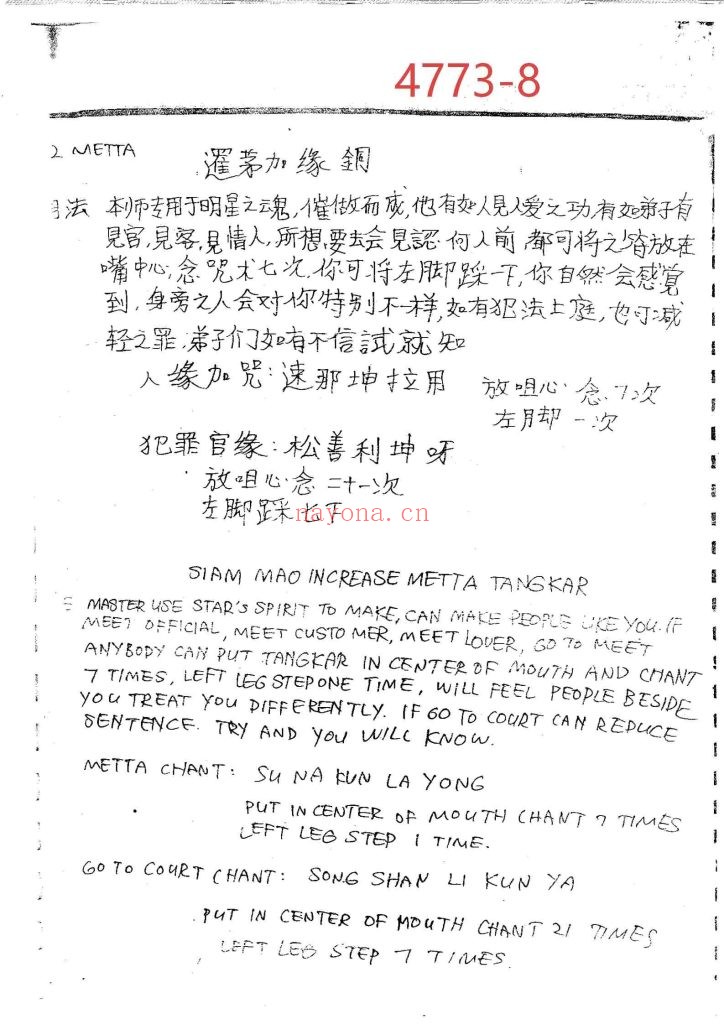 4773-8
2 METTA
暹茅加缘銅
法 本师专用于明星之魂,催做而成,他有如人見人爱之功,有如弟子有
見官,見客,見情人,所想要去会見認何人前 都可将之含放在
嘴中心,念咒术七次,你可将左脚踩一下,你自然会感覚
到,身旁之人会对你特别不一样,如有犯法上庭,也可减
轻之罪,弟子们如有不信試就知
人缘加咒:速那坤拉用
放咀心 念 7次
左月却 一次
犯罪官缘:松善利坤呀
放咀心 念 二十一次
左脚踩七下
nayona.cn
SIAM MAO INCREASE METTA TANGKAR
MASTER USE STAR'S SPIRIT TO MAKE, CAN MAKE PEOPLE LIKE YOU. IF
MEET OFFICIAL, MEET CUSTOMER, MEET LOVER, GO TO MEET
ANYBODY CAN PUT TANGKAR IN CENTER OF MOUTH AND CHANT
7 TIMES, LEFT LEG STEP ONE TIME, WILL FEEL PEOPLE BESIDE
YOU TREAT YOU DIFFERENTLY. IF GO TO COURT CAN REDUCE
SENTENCE. TRY AND YOU WILL KNOW.
METTA CHANT: SU NA KUN LA YONG
PUT IN CENTER OF MOUTH CHANT 7 TIMES
LEFT LEG STEP 1 TIME.
GO TO COURT CHANT: SONG SHAN LI KUN YA
PUT IN CENTER OF MOUTH CHANT 21 TIMES
LEFT LEG STEP 7 TIMES.